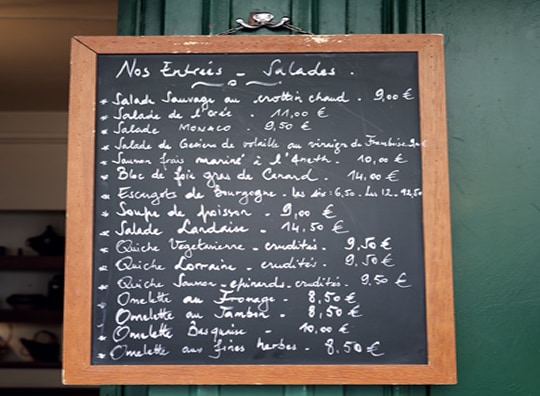 Nos Entrées - Salades.
* Salade Sauvage au crottin chaud. 9,00 €
* Salade de l'orée. 11,00 €
* Salade MONACO. 9,50 €
* Salade de Gesiers de volaille au vinaigre de Framboise
* Saumon frais mariné à l'Aneth. 10,00 €
* Bloc de foie gras de Canard. 14,00 €
* Escargots de Bourgogne. les six: 6,50. Les 12. 12,50
* Soupe de poisson. 9,00 €
* Salade Landaise - 14,50 €
* Quiche Végétarienne - crudités. 9,50 €
* Quiche Lorraine - crudités. 9,50 €
* Quiche Saumon - épinards - crudités. 9,50 €
Omelette au Fromage - 8,50 €
Omelette au Jambon - 8,50 €
* Omelette Basquaise - 10,00 €
* Omelette aux fines herbes - 8,50 €